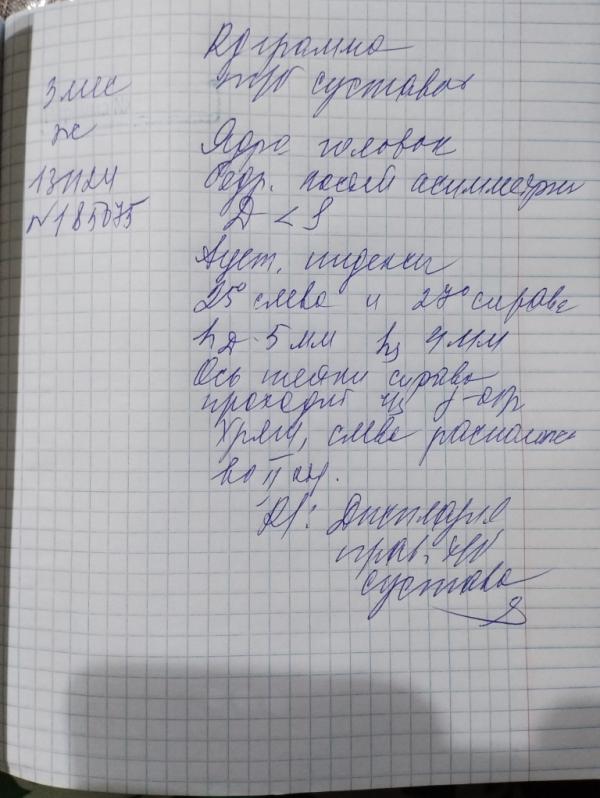 Rграмма
3 мес т/б суставов
ж
Ядра головок
13 11 24 бедр. костей асимметрич
N 185075 D < S
Ацет. индексы
25° слева и 27° справа
hд - 5 мм hs 4 мм
Ось шейки справа
проходит ч/з обр
хрящ, слева расположе
во II кв.
Rl: Дисплазия
прав. т/б
сустава